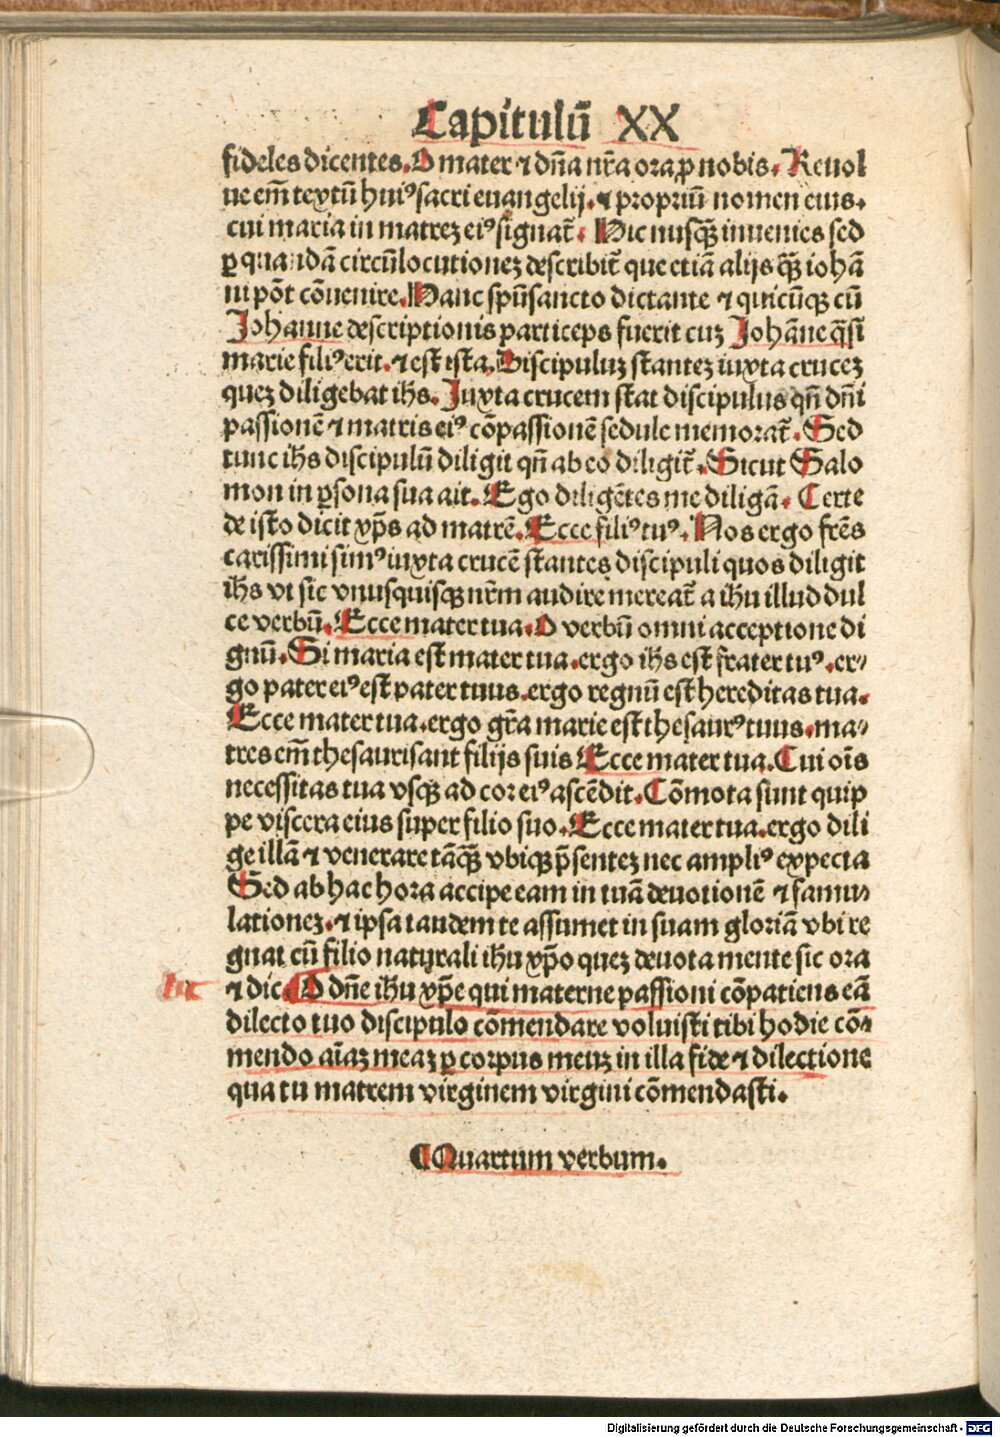 Capitulū XX
fidelesdicentes. O mater ⁊ dn̄a nr̄a ora ꝓ nobis. Reuol
ue em̄ textū huiꝰ sacri euangelij. ⁊ propriū nomen eius.
cui maria in matreꝫ eiꝰ signat̄. Hic nusq̄ꝫ inuenies sed
ꝑ quandā circūlocutioneꝫ describit̄ que etiā alijs q̄ꝫ iohā
ni pōt cōuenire. Hanc spūsancto dictante ⁊ quicūqꝫ cū
Johanne descriptionis particeps fuerit cuꝫ Johāne q̄si
marie filiꝰ erit. ⁊ est ista. Discipuluꝫ stanteꝫ iuxta cruceꝫ
queꝫ diligebat ihs. Juxta crucem stat discipulus qn̄ dn̄i
passionē ⁊ matris eiꝰ cōpassionē sedule memorat̄. Sed
tunc ihs discipulū diligit qn̄ ab eo diligit̄. Sicut Salo
mon in ꝑsona sua ait. Ego diligētes me diligā. Certe
de isto dicit xp̄s ad matrē. Ecce filiꝰ tuꝰ. Nos ergo frēs
carissimi simꝰ iuxta crucē stantes discipuli quos diligit
ihs vt sic vnusquisqꝫ nr̄m audire mereat̄ a ihu illud dul
ce verbū. Ecce mater tua. O verbū omni acceptione di
gnū. Si maria est mater tua. ergo ihs est frater tuꝰ. er⸗
go pater eiꝰ est pater tuus. ergo regnū est hereditas tua.
Ecce mater tua. ergo gr̄a marie est thesaurꝰ tuus. ma⸗
tres em̄ thesaurisant filijs suis Ecce mater tua. Cui oīs
necessitas tua vsqꝫ ad cor eiꝰ ascēdit. Cōmota sunt quip
pe viscera eius super filio suo. Ecce mater tua. ergo dili
ge illā ⁊ venerare tāq̄ꝫ vbiqꝫ p̄senteꝫ nec ampliꝰ expecta
Sed ab hac hora accipe eam in tuā deuotionē ⁊ famu⸗
lationeꝫ. ⁊ ipsa tandem te assumet in suam gloriā vbi re
gnat cū filio naturali ihu xp̄o queꝫ deuota mente sic ora
⁊ dic. O dn̄e ihu xp̄e qui materne passioni cōpatiens eā
dilecto tuo discipulo cōmendare voluisti tibi hodie cō⸗
mendo aīaꝫ meaꝫ ꝑ corpus meuꝫ in illa fide ⁊ dilectione
qua tu matrem virginem virgini cōmendasti.
¶ Quartum verbum.
Digitalisierung gefördert durch die Deutsche Forschungsgemeinschaft - DFG